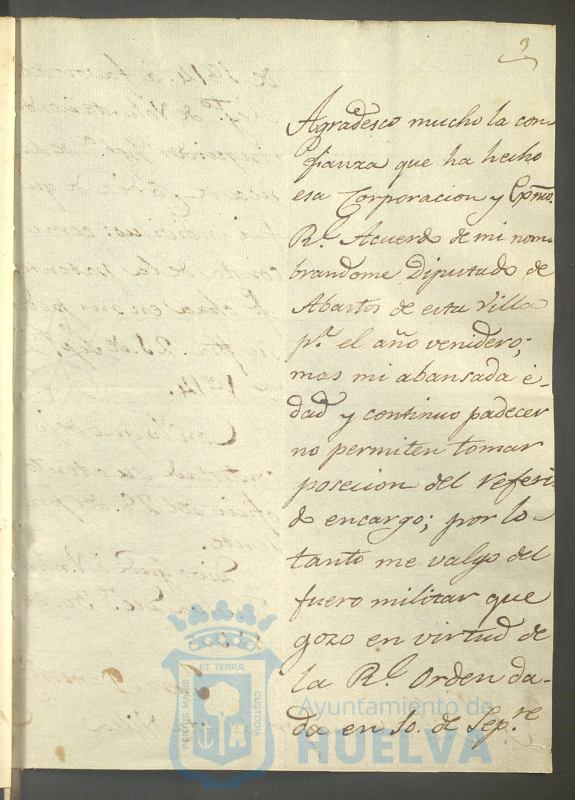 3
Agradesco mucho la con
fianza que ha hecho
esa Corporacion y
Rl. Acuerdo de mi nom
brandome Diputado de
Abastos de esta Villa
pa. el año venidero;
mas mi abansada e-
dad y continuo padecer
no permiten tomar
posecion del referi
do encargo; por lo
tanto me valgo del
fuero militar que
gozo en virtud de
la Rl. Orden da-
da en 10. de Sepre
PORTUS MARIS ET TERRÆ CUSTODIA
Ayuntamiento de
HUELVA